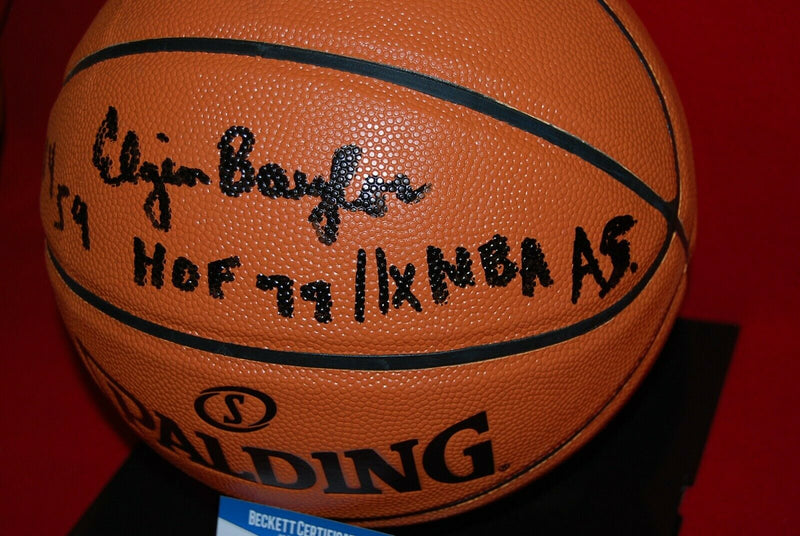 Elgin Baylor
59
HOF 77 11x NBA A.S.
S
SPALDING
BECKETT CERTIFICA